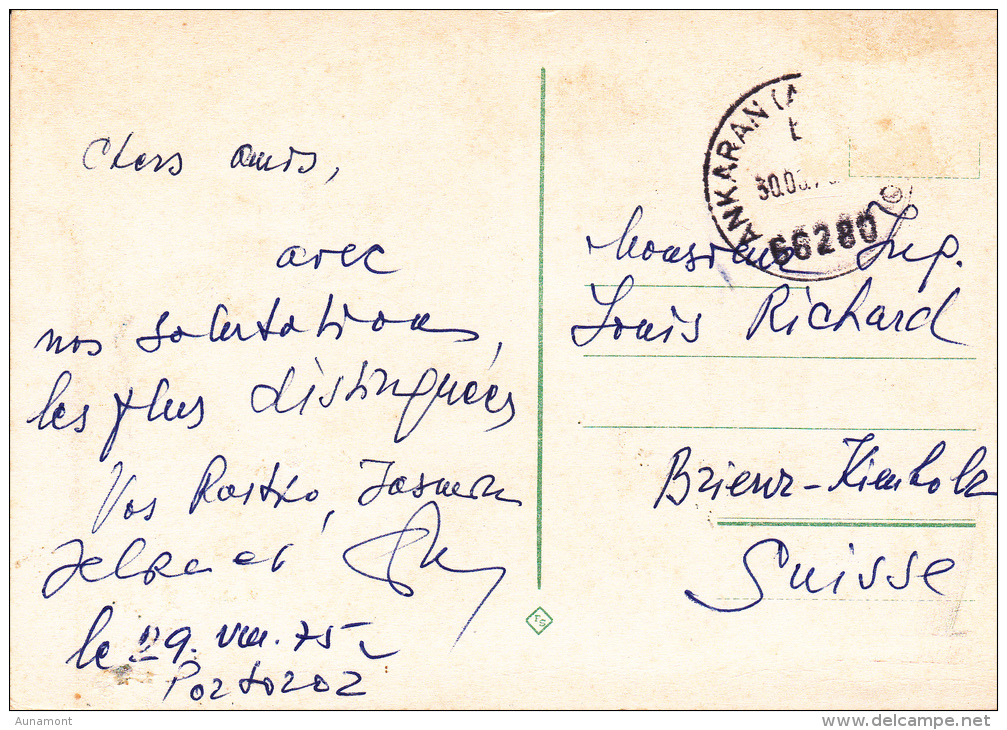 Chers amis,
avec
nos salutations,
les plus distinguées
Vos Rastko, Jasmina
Jelka et
le 29. VIII. 75
Portoroz
ANKARAN (A
30.08.7
66280
Monsieur Ing.
Louis Richard
Brienz-Kienholz
Suisse
Aunamont
delcampe.net